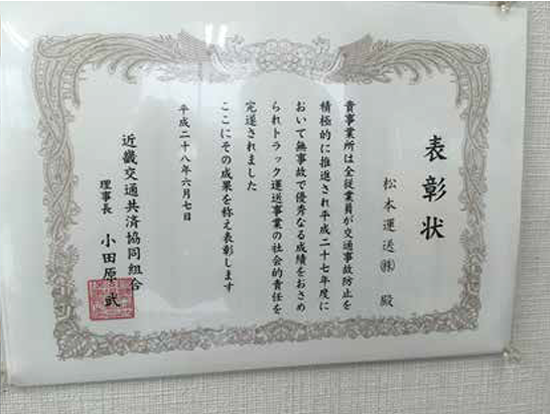 表彰状
松本運送㈱ 殿
貴事業所は全従業員が交通事故防止を
積極的に推進され平成二十七年度に
おいて無事故で優秀なる成績をおさめ
られトラック運送事業の社会的責任を
完遂されました
ここにその成果を称え表彰します
平成二十八年六月七日
近畿交通共済協同組合
理事長 小田原 武